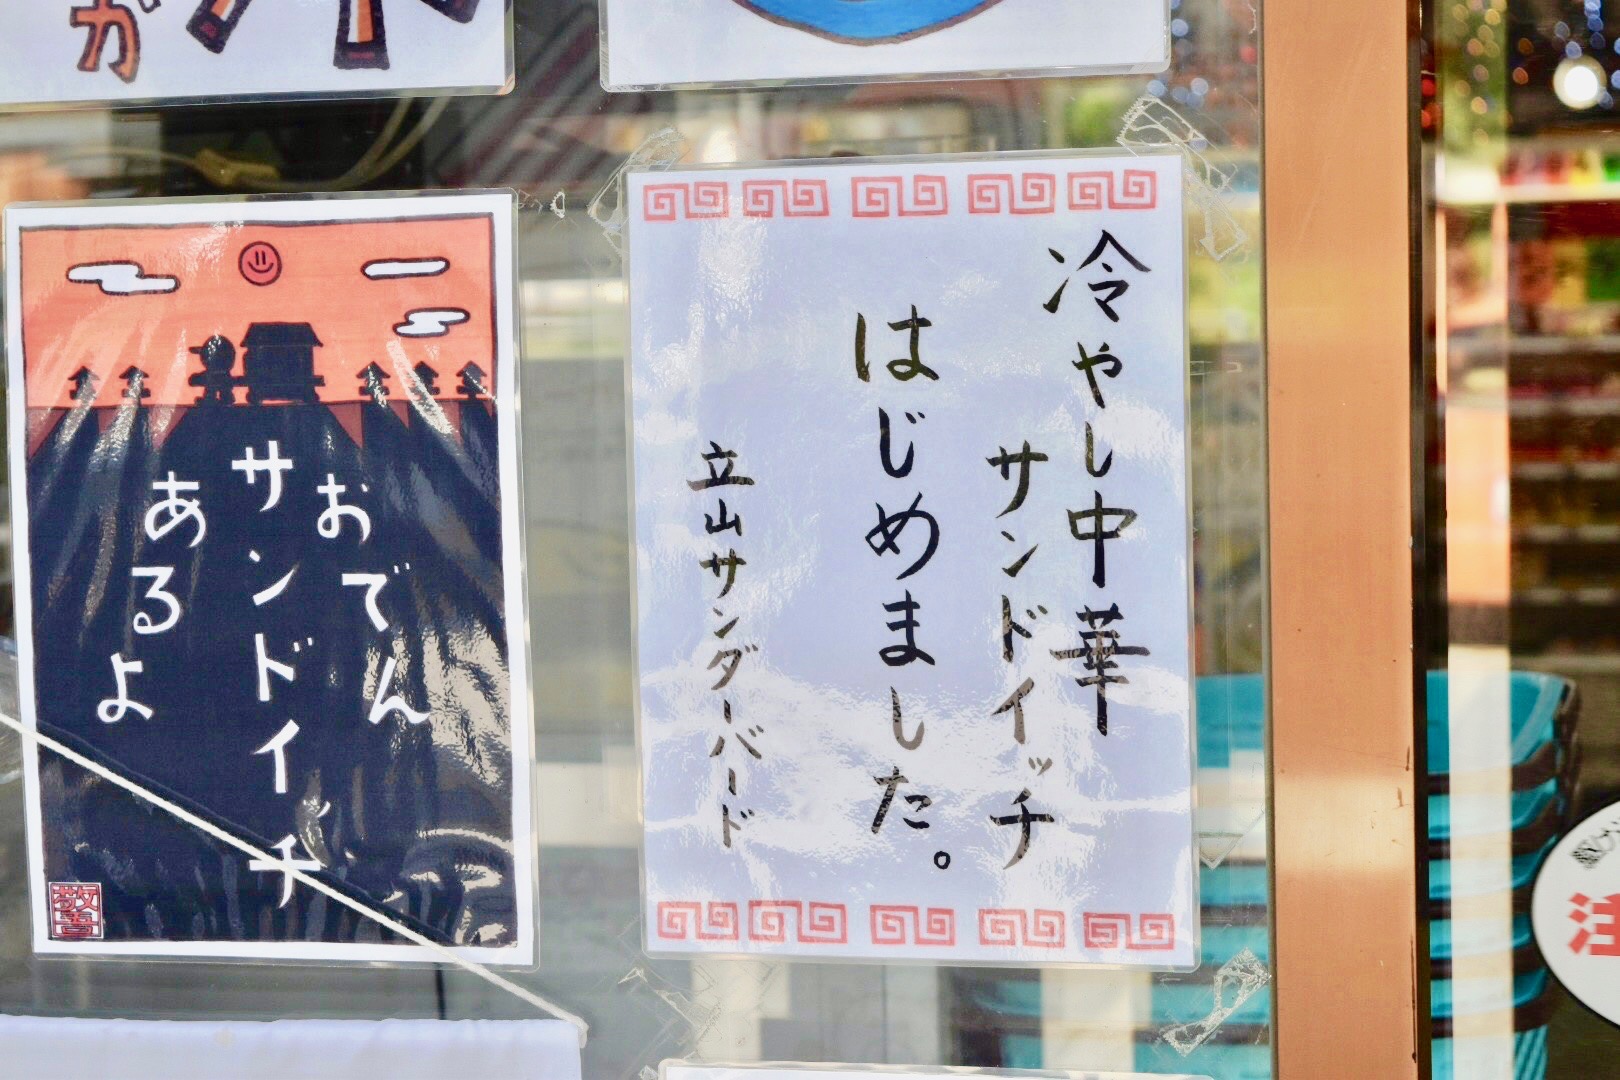 冷やし中華
サンドイッチ
はじめました。
立山サンダーバード
おでん
サンドイッチ
あるよ
が
注